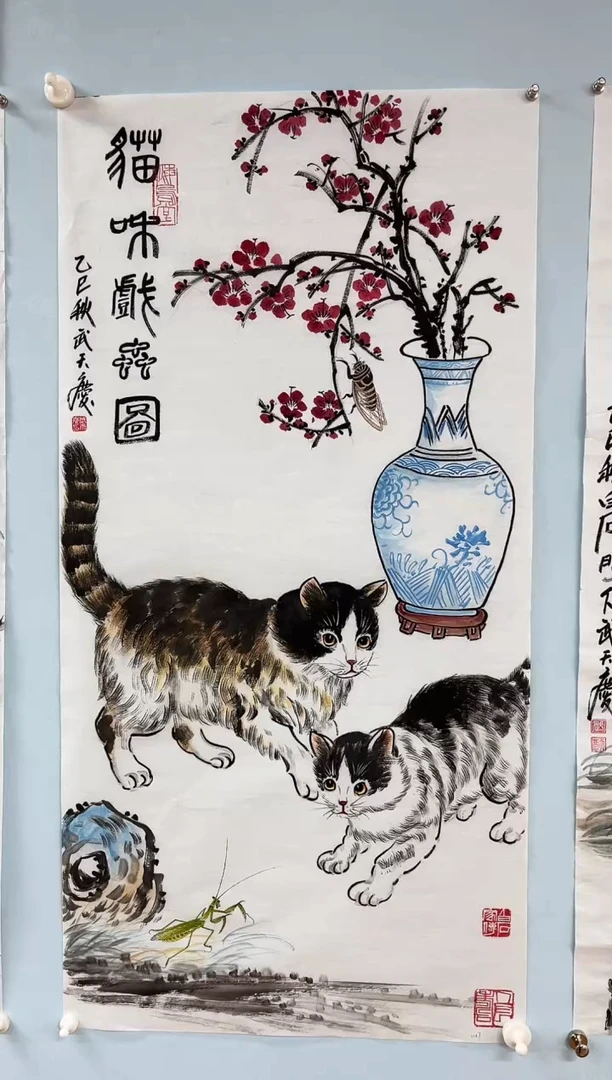 乙巳秋白石門下武天慶
貓咪戲蟲圖
乙巳秋武天慶